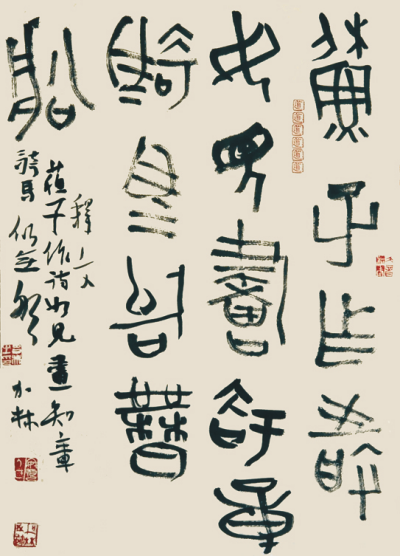 蘇子作詩
如見畫知章
騎馬似乘
船
釋文
蘇子作詩如見畫知章
騎馬似乘船
加林